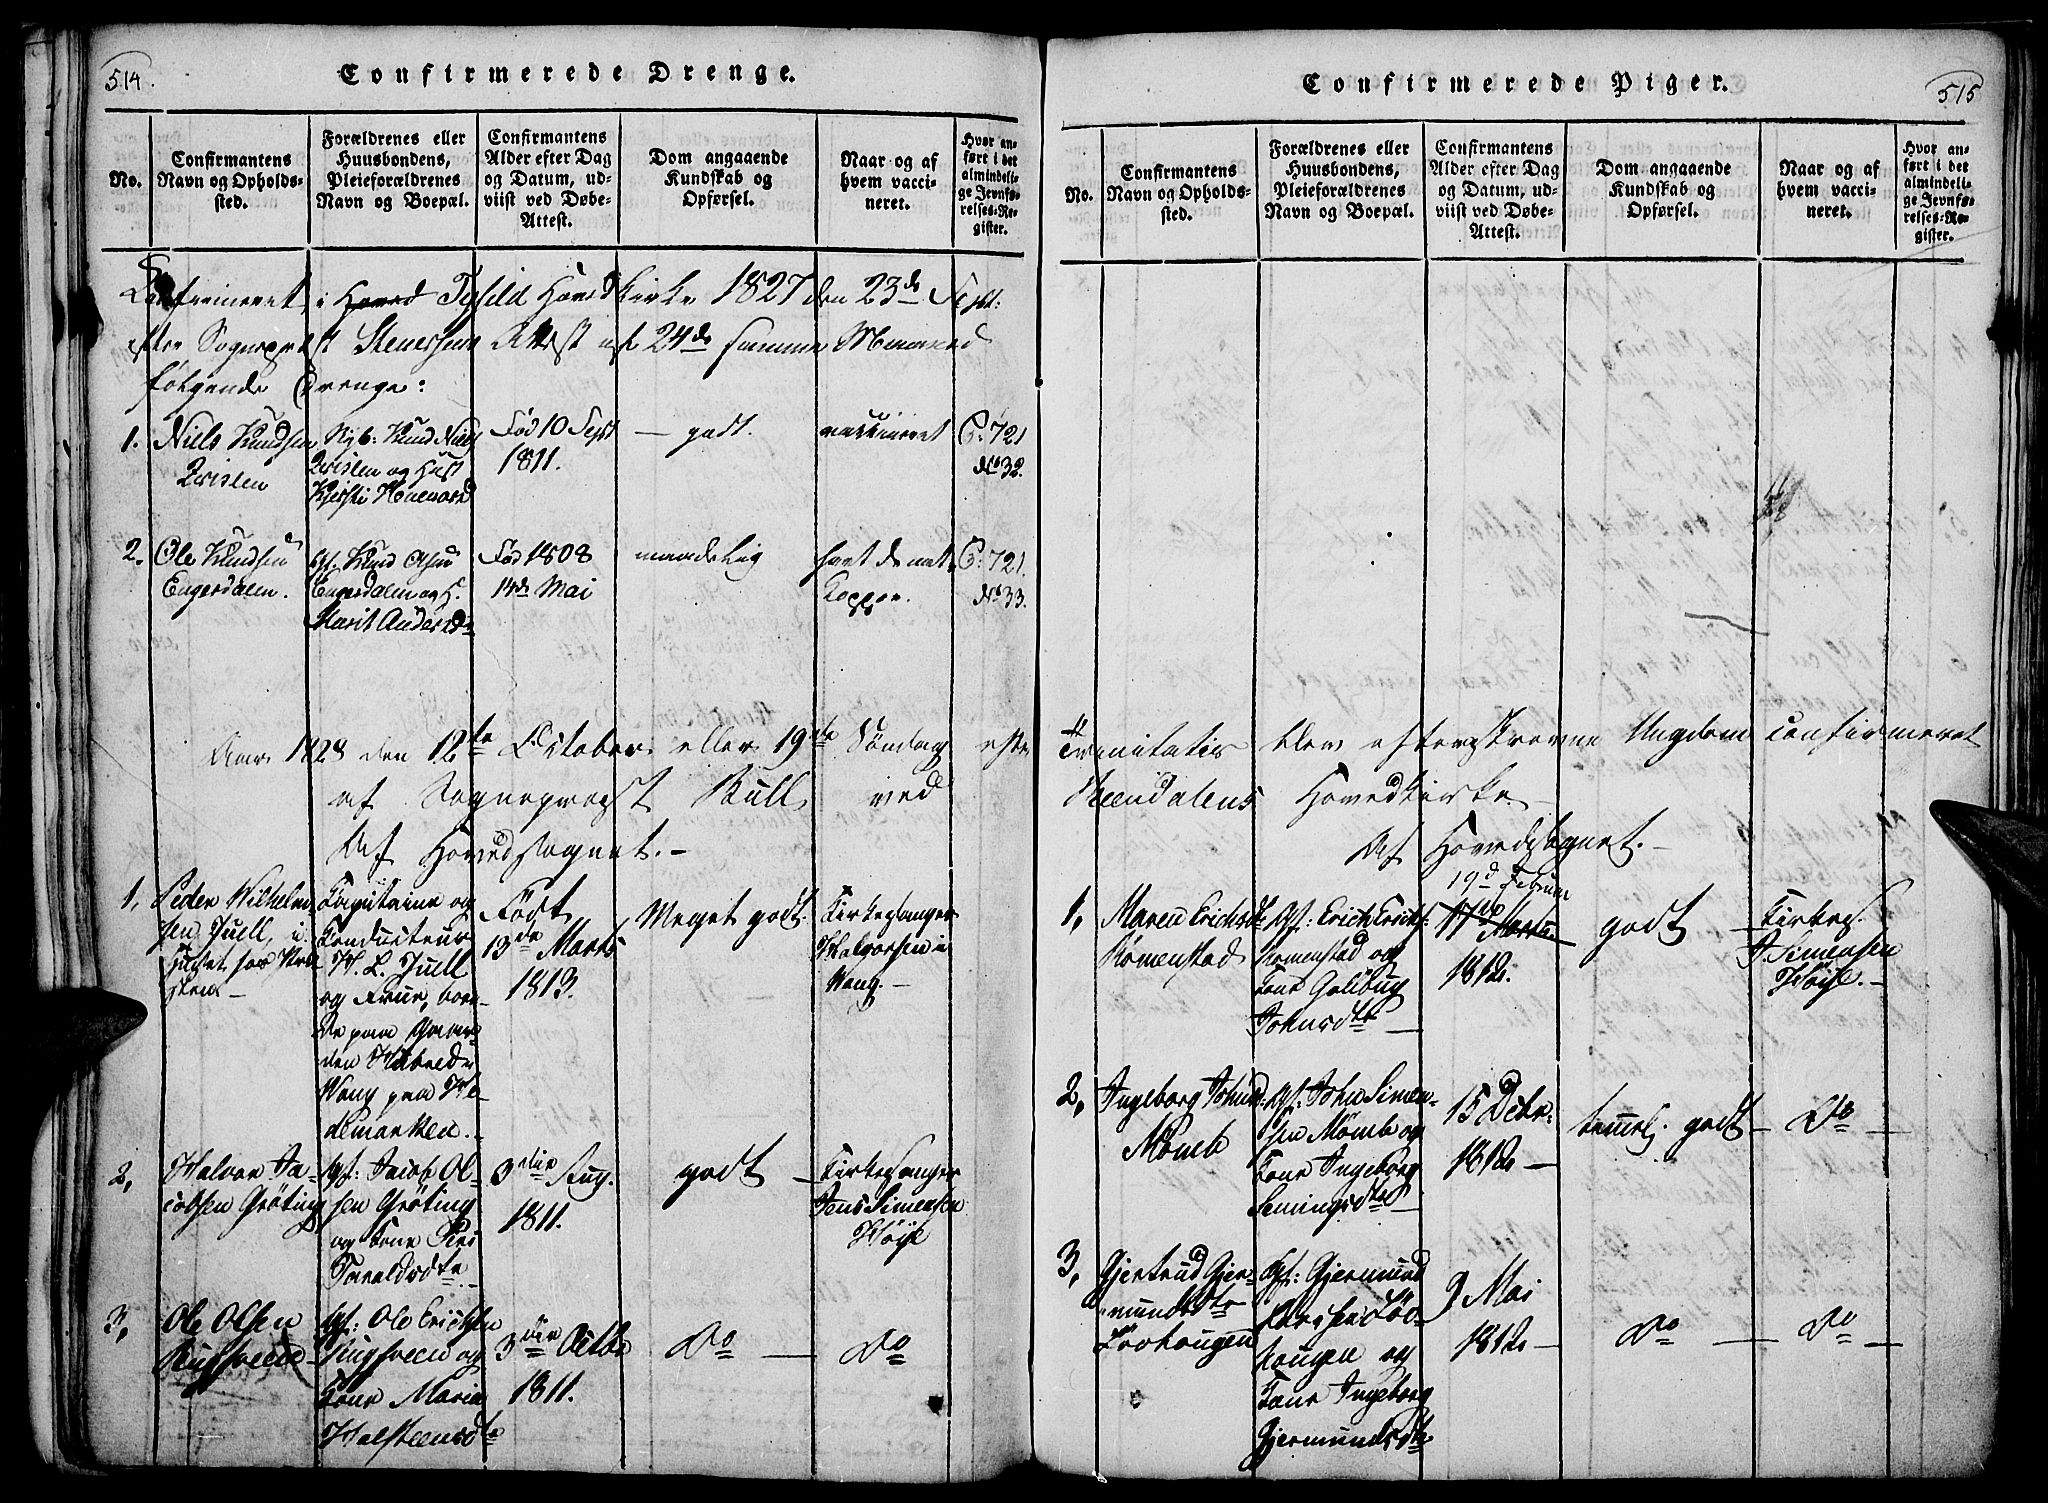 514.
Confirmerede Drenge.
No.
Confirmantens
Navn og Opholds-
sted.
Forældrenes eller
Huusbondens,
Pleieforældrenes
Navn og Boepæl.
Confirmantens
Alder efter Dag
og Datum, ud-
viist ved Døbe-
Attest.
Dom angaaende
Kundskab og
Opførsel.
Naar og af
hvem vacci-
neret.
Hvor an-
ført i det
almindeli-
ge Jevnfø-
relses-Re-
gister.
Confirmeret i Tyldal Hovedkirke 1827 den 23de Sept:
efter Sognepræst Stenersens Attest af 24de samme Maaned
følgende Drenge:
1.
Niels Knudsen
Qvislen
Knud Niels
Qvislen og Hust
Kjersti
Fød 10 Sept
1811.
godt.
vaccineret
P: 721
No 32.
2.
Ole Knudsen
Engerdalen.
Gf. Knud Olsen
Engerdalen og H.
Marit Andersd
Fød 1808
14de Mai
maadelig
havt de nat.
Kopper.
P: 721.
No 33.
Aar 1828 den 12te October eller 19de Søndag efter
af Sogneprest Bull ved
Af Hovedsognet.
1,
Peder Wilhelm-
sen Juell,
Capitaine og
Conducteur
H. L. Juell
og Frue, boen-
de paa Gaar-
den
Wang paa He-
demarken.
Født
13de Marts
1813.
Meget godt.
Kirkesanger
Halvorsen i
Wang.
2,
Halvor Ja-
cobsen Grøting
Gf: Jacob Ol-
sen Grøting
og Kone Siri
Taraldsdtr
3die Aug.
1811.
godt
Kirkesanger
Jens Simensen
Høye
3,
Ole Olsen
Rugsveen
Gf: Ole Erichsen
Rugsveen og
Kone Maria
Halsteensdtr
3die Octbr
1811.
Do
Do
515
Confirmerede Piger.
No.
Confirmantens
Navn og Opholds-
sted.
Forældrenes eller
Huusbondens,
Pleieforældrenes
Navn og Boepæl.
Confirmantens
Alder efter Dag
og Datum, ud-
viist ved Døbe-
Attest.
Dom angaaende
Kundskab og
Opførsel.
Naar og af
hvem vacci-
neret.
Hvor an-
ført i det
almindeli-
ge Jevnfø-
relses-Re-
gister.
Trinitatis blev efterskrevne Ungdom confirmeret
Reendalens Hovedkirke.
Af Hovedsognet.
1,
Maren Erichsdtr
Rømenstad
Gf: Erich Erichs.
Rømenstad og
Kone Goldbug
Johnsdtr
19d Februar
17de Marts
1812.
godt
Kirkes.
J. Simensen
Høye.
2,
Ingeborg Johnsd:
Møneb
Gf: John Simen-
sen Møneb og
Kone Ingeborg
Semingsdtr
15 Decbr.
1812
temelj. godt
Do
3,
Gjertrud Gjer-
mundsdtr
Løvhougen
Gf: Gjermund
Larssen Løv-
hougen og
Kone Ingeborg
Gjermundsdtr
9 Mai
1812
Do
Do